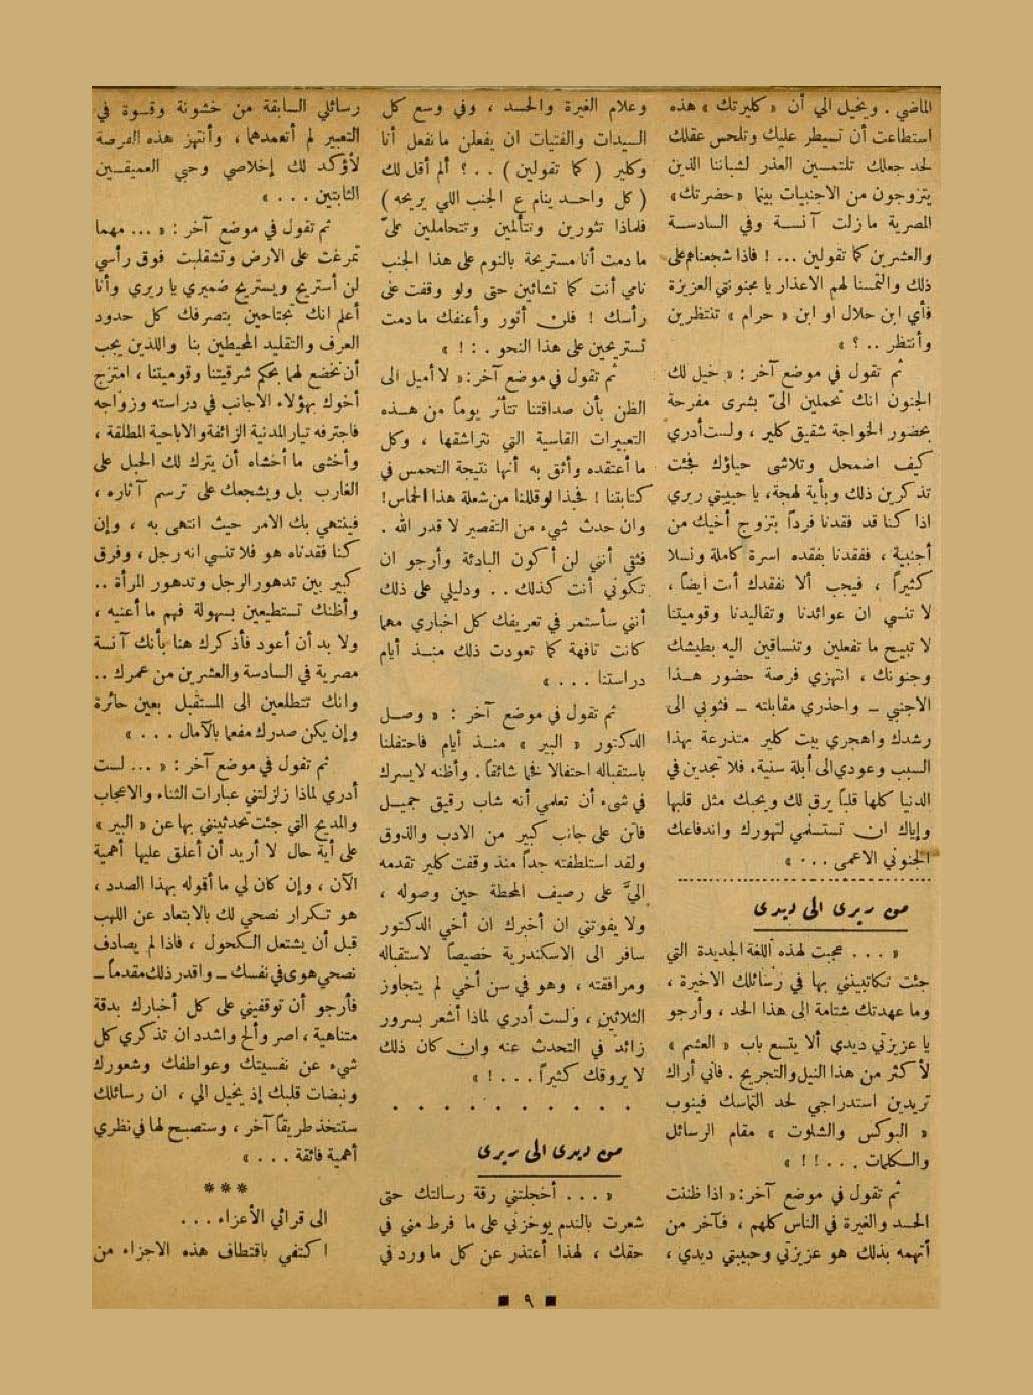 الماضي . ويخيل الي أن « كليرتك » هذه
استطاعت أن تسيطر عليك وتلحس عقلك
لحد جعلك تلتمسين العذر لشباننا الذين
يتزوجون من الاجنبيات بينما « حضرتك »
المصرية ما زلت آنسة وفي السادسة
والعشرين كما تقولين ... ! فاذا شجعناهم على
ذلك والتمسنا لهم الاعذار يا مجنونتي العزيزة
فأي ابن حلال او ابن « حرام » تنتظرين
وأنتظر .. ؟ »
ثم تقول في موضع آخر : « خيل لك
الجنون انك تحملين اليّ بشرى مفرحة
بحضور الخواجة شقيق كلير ، ولست أدري
كيف اضمحل وتلاشى حياؤك فجئت
تذكرين ذلك وبأية لهجة ، يا حبيبتي ريري
اذا كنا قد فقدنا فرداً بتزوج أخيك من
أجنبية ، ففقدنا بفقده اسرة كاملة ونسلا
كثيراً ، فيجب ألا نفقدك أنت أيضاً ،
لا تنسي ان عوائدنا وتقاليدنا وقوميتنا
لا تبيح ما تفعلين وتنساقين اليه بطيشك
وجنونك ، انتهزي فرصة حضور هذا
الاجنبي ــ واحذري مقابلته ــ فثوبي الى
رشدك واهجري بيت كلير متذرعة بهذا
السبب وعودي الى أبلة سنية ، فلا تجدين في
الدنيا كلها قلباً يرق لك ويحبك مثل قلبها
وإياك ان تستسلمي لتهورك واندفاعك
الجنوني الاعمى ... »
من ريرى الى ديدى
« ... عجبت لهذه اللغة الجديدة التي
جئت تكاتبينني بها في رسائلك الاخيرة ،
وما عهدتك شتامة الى هذا الحد ، وأرجو
يا عزيزتي ديدي ألا يتسع باب « العشم »
لأكثر من هذا النيل والتجريح . فاني أراك
تريدين استدراجي لحد التماسك فينوب
« البوكس والشلوت » مقام الرسائل
والكلمات ... !! »
ثم تقول في موضع آخر : « اذا ظننت
الحسد والغيرة في الناس كلهم ، فآخر من
أتهمه بذلك هو عزيزتي وحبيبتي ديدي ،
وعلام الغيرة والحسد ، وفي وسع كل
السيدات والفتيات ان يفعلن ما نفعل أنا
وكلير ( كما تقولين ) .. ؟ ألم أقل لك
( كل واحد ينام ع الجنب اللي يريحه )
فلماذا تثورين وتتألمين وتتحاملين عليّ
ما دمت أنا مستريحة بالنوم على هذا الجنب
نامي أنت كما تشائين حتى ولو وقفت على
رأسك ! فلن أثور وأعنفك ما دمت
تستريحين على هذا النحو . : ! »
ثم تقول في موضع آخر : « لا أميل الى
الظن بأن صداقتنا تتأثر يوماً من هذه
التعبيرات القاسية التي نتراشقها ، وكل
ما أعتقده وأثق به أنها نتيجة التحمس في
كتابتنا ! فحبذا لو قللنا من شعلة هذا الحماس !
وان حدث شيء من التقصير لا قدر الله .
فثقي أنني لن أكون البادئة وأرجو ان
تكوني أنت كذلك .. ودليلي على ذلك
أنني سأستمر في تعريفك كل اخباري مهما
كانت تافهة كما تعودت ذلك منذ أيام
دراستنا ... »
ثم تقول في موضع آخر : « وصل
الدكتور « البير » منذ أيام فاحتفلنا
باستقباله احتفالا فخما شائقاً . وأظنه لا يسرك
في شيء أن تعلمي أنه شاب رقيق جميل
فاتن على جانب كبير من الادب والذوق
ولقد استلطفته جداً منذ وقفت كلير تقدمه
إليَّ على رصيف المحطة حين وصوله ،
ولا يفوتني ان أخبرك ان أخي الدكتور
سافر الى الاسكندرية خصيصاً لاستقباله
ومرافقته ، وهو في سن أخي لم يتجاوز
الثلاثين ، ولست أدري لماذا أشعر بسرور
زائد في التحدث عنه وان كان ذلك
لا يروقك كثيراً ... ! »
من ديدى الى ريرى
« ... أخجلتني رقة رسالتك حتى
شعرت بالندم يوخزني على ما فرط مني في
حقك ، لهذا أعتذر عن كل ما ورد في
رسائلي السابقة من خشونة وقسوة في
التعبير لم أتعمدهما ، وأنتهز هذه الفرصة
لأؤكد لك إخلاصي وحبي العميقين
الثابتين ... »
ثم تقول في موضع آخر : « ... مهما
تمرغت على الارض وتشقلبت فوق رأسي
لن أستريح ويستريح ضميري يا ريري وأنا
أعلم انك تجتاحين بتصرفك كل حدود
العرف والتقليد المحيطين بنا واللذين يجب
أن نخضع لهما بحكم شرقيتنا وقوميتنا ، امتزج
أخوك بهؤلاء الأجانب في دراسته وزواجه
فاجترفه تيار المدنية الزائفة والاباحية المطلقة ،
وأخشى ما أخشاه أن يترك لك الحبل على
الغارب بل ويشجعك على ترسم آثاره ،
فينتهي بك الامر حيث انتهى به ، وإن
كنا فقدناه هو فلا تنسي انه رجل ، وفرق
كبير بين تدهور الرجل وتدهور المرأة ..
وأظنك تستطيعين بسهولة فهم ما أعنيه ،
ولا بد أن أعود فأذكرك هنا بأنك آنسة
مصرية في السادسة والعشرين من عمرك ..
وانك تتطلعين الى المستقبل بعين حائرة
وإن يكن صدرك مفعما بالآمال ... »
ثم تقول في موضع آخر : « ... لست
أدري لماذا زلزلتني عبارات الثناء والاعجاب
والمديح التي جئت تحدثينني بها عن « البير »
على أية حال لا أريد أن أعلق عليها أهمية
الآن ، وإن كان لي ما أقوله بهذا الصدد ،
هو تكرار نصحي لك بالابتعاد عن اللهب
قبل أن يشتعل الكحول ، فاذا لم يصادف
نصحي هوى في نفسك ــ واقدر ذلك مقدماً ــ
فأرجو أن توقفيني على كل أخبارك بدقة
متناهية ، اصر وألح واشدد ان تذكري كل
شيء عن نفسيتك وعواطفك وشعورك
ونبضات قلبك إذ يخيل الي ، ان رسائلك
ستتخذ طريقاً آخر ، وستصبح لها في نظري
أهمية فائقة ... »
***
الى قرائي الأعزاء ...
اكتفي باقتطاف هذه الاجزاء من
٩